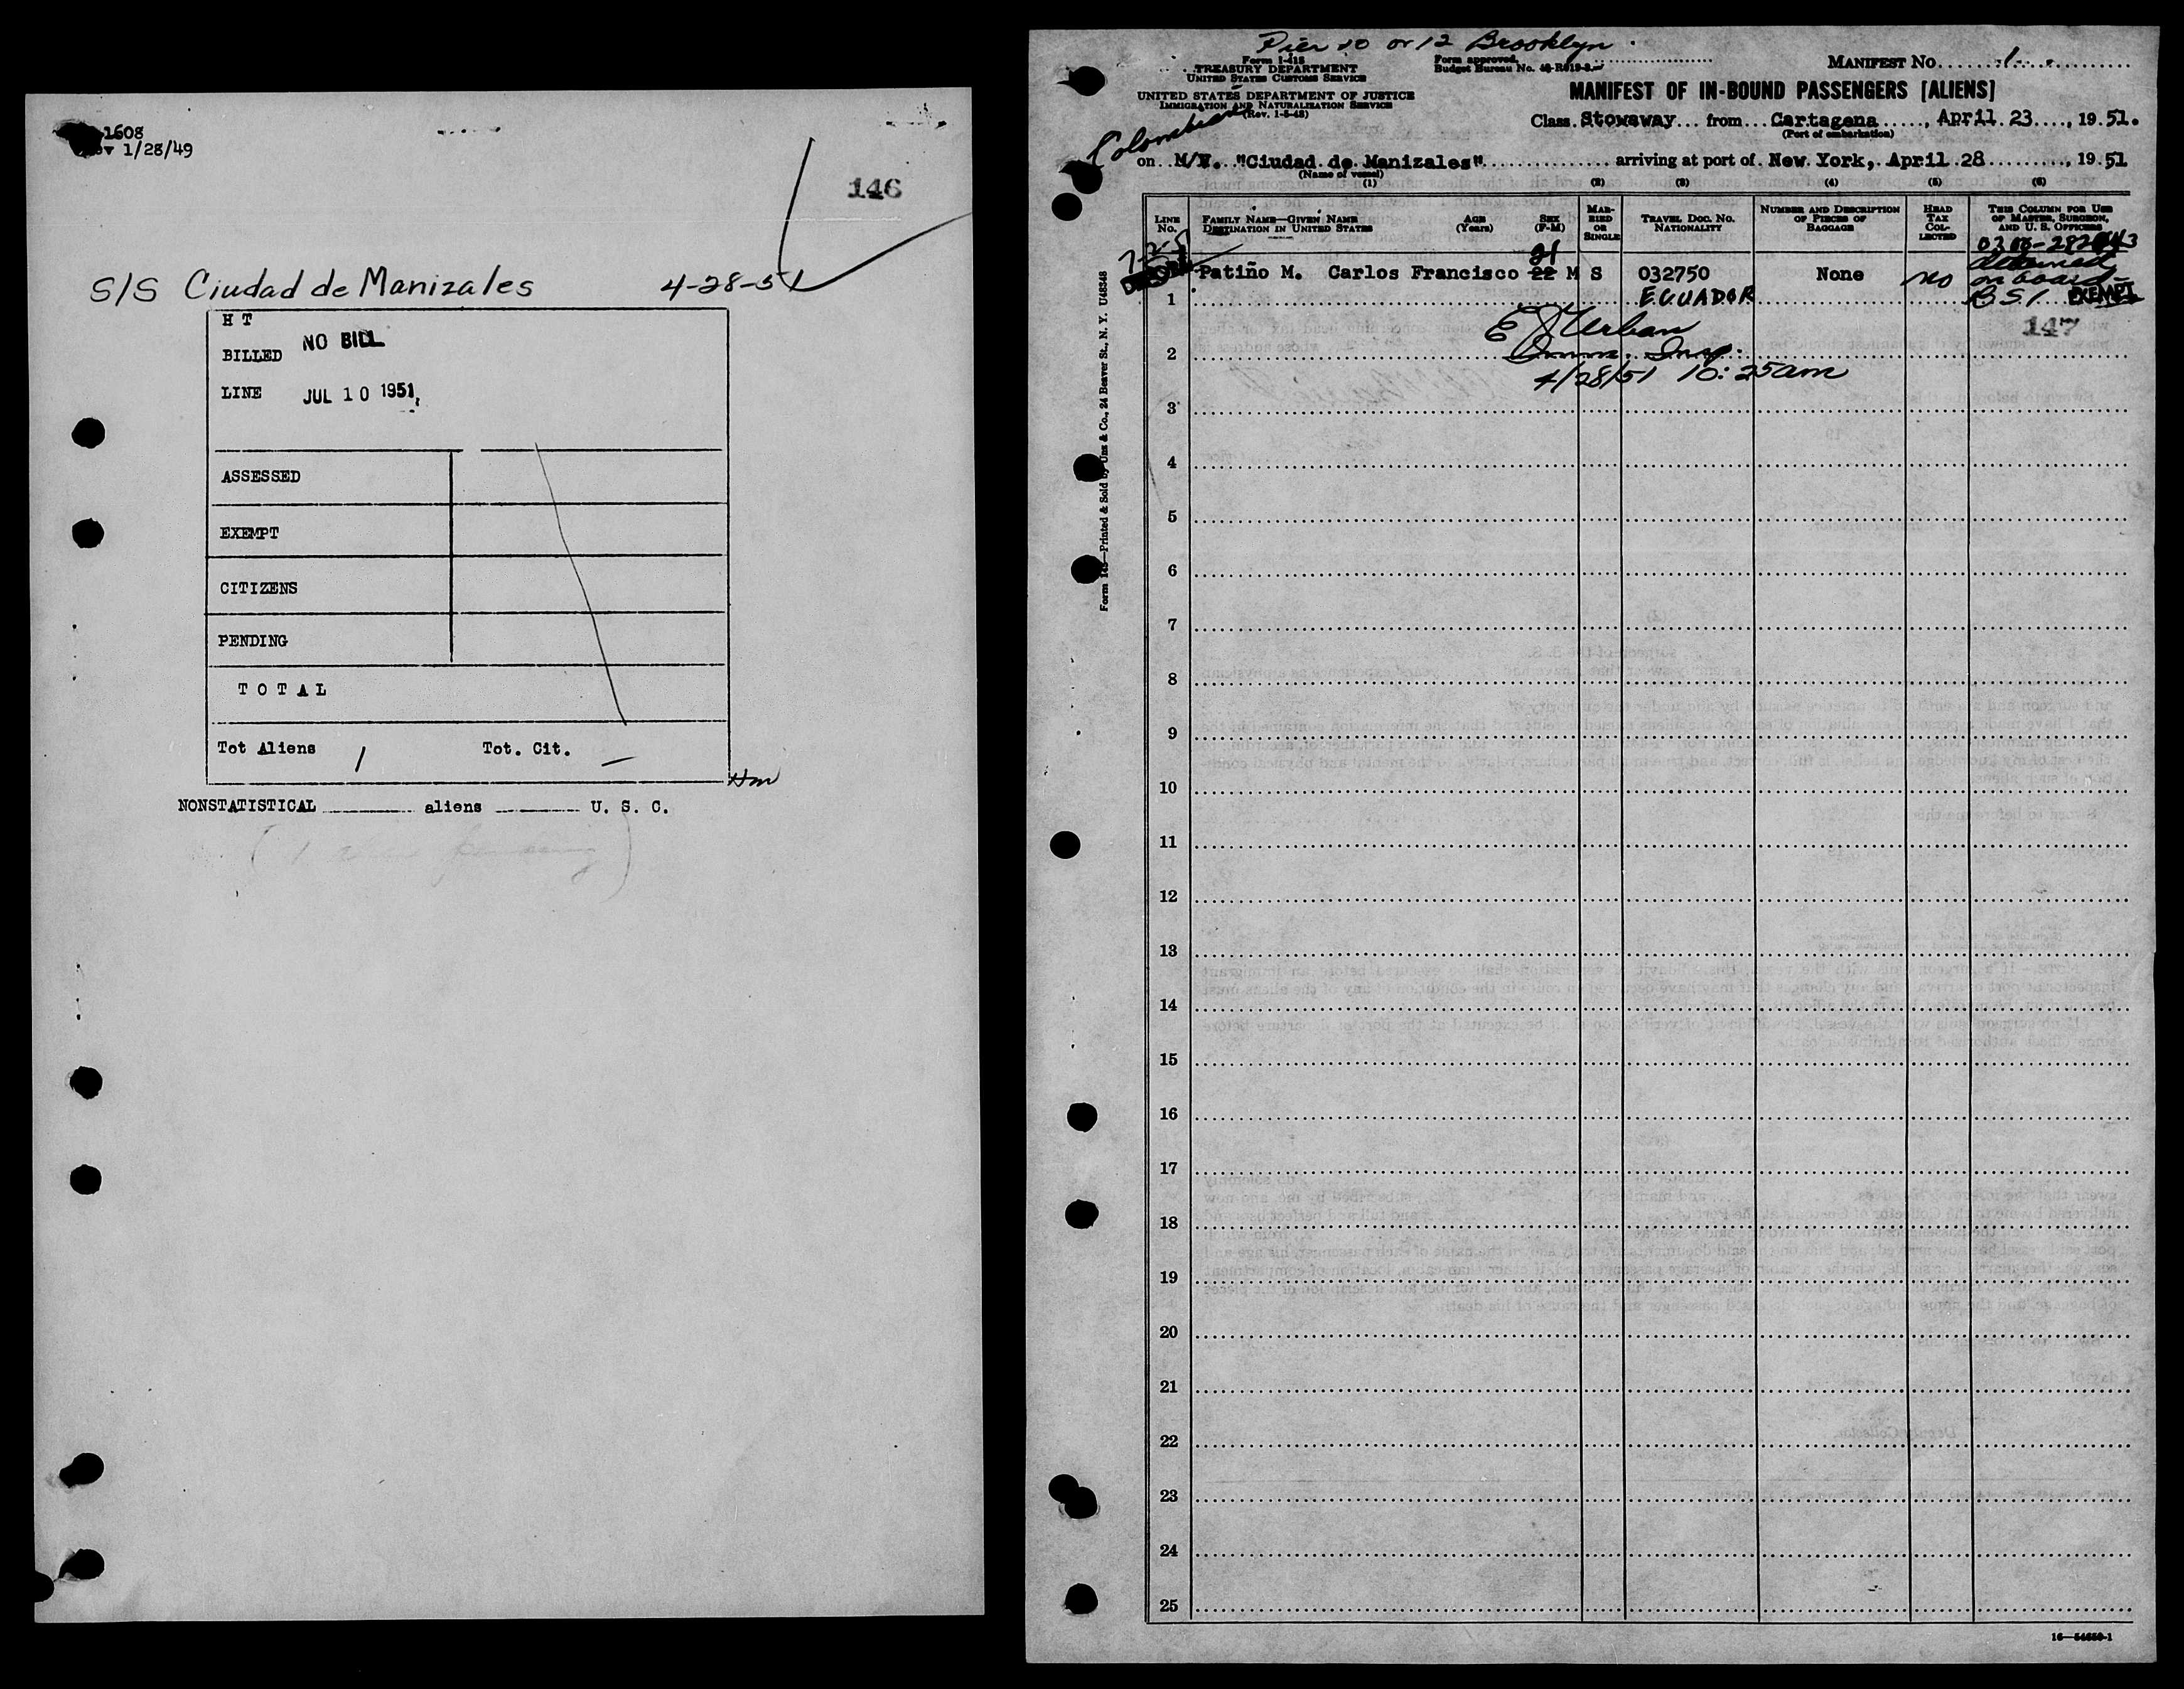 1608
1/28/49
146
S/S Ciudad de Manizales 4-28-51
H T
BILLED NO BILL
LINE JUL 10 1951
ASSESSED
EXEMPT
CITIZENS
PENDING
T O T A L
Tot Aliens 1 Tot. Cit. —
NONSTATISTICAL aliens U. S. C.
Pier 10 or 12 Brooklyn
Form I-418
TREASURY DEPARTMENT
UNITED STATES CUSTOMS SERVICE
UNITED STATES DEPARTMENT OF JUSTICE
IMMIGRATION AND NATURALIZATION SERVICE
(Rev. 1-5-48)
Form approved.
Budget Bureau No.
MANIFEST NO. 1
MANIFEST OF IN-BOUND PASSENGERS [ALIENS]
Class Stowaway from Cartagena, April 23, 1951.
(Port of embarkation)
Colombian
on M/V. "Ciudad de Manizales" arriving at port of New York, April 28, 1951
(Name of vessel)
(1) (2) (3) (4) (5) (6)
LINE NO.
FAMILY NAME—GIVEN NAME
DESTINATION IN UNITED STATES
AGE (Years)
SEX (F-M)
MARRIED OR SINGLE
TRAVEL DOC. NO.
NATIONALITY
NUMBER AND DESCRIPTION OF PIECES OF BAGGAGE
HEAD TAX COLLECTED
THIS COLUMN FOR USE OF MASTER, SURGEON, AND U. S. OFFICERS
21
Patiño M. Carlos Francisco 22 M S 032750 None no
detained
on board
1 ECUADOR BSI EXEMPT
147
E J Urban
2 Imm. Insp.
4/28/51 10:25am
3
4
5
6
7
8
9
10
11
12
13
14
15
16
17
18
19
20
21
22
23
24
25
Printed & Sold by Unz & Co., 24 Beaver St., N. Y. U48348
16—54650-1